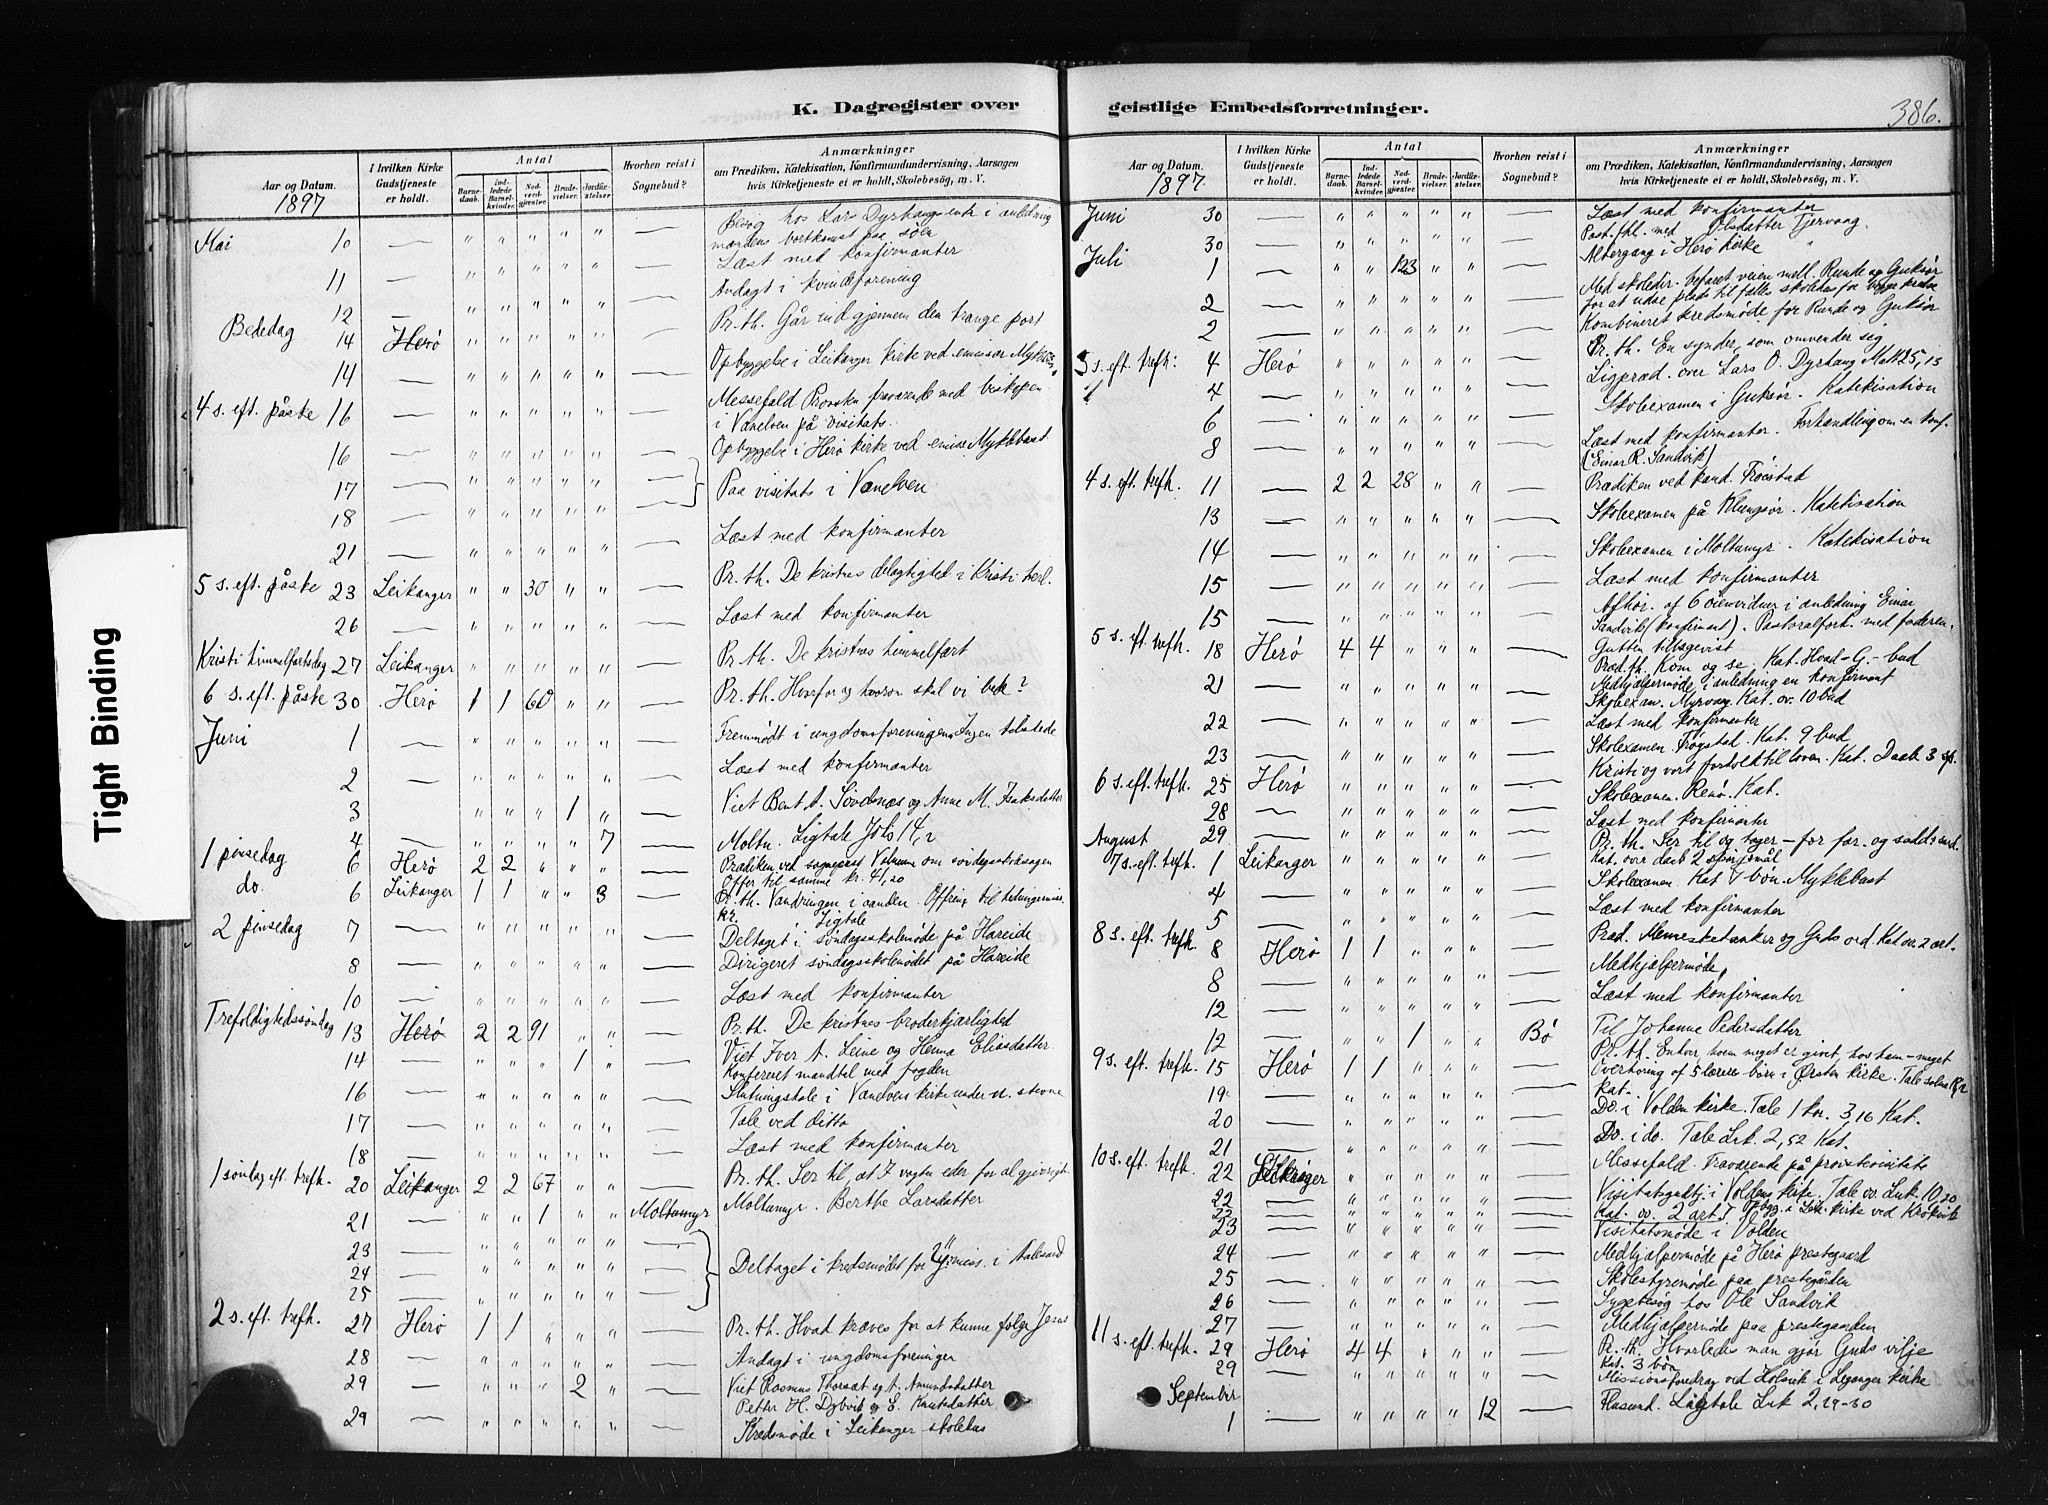 K. Dagregister over
geistlige Embedsforretninger.
386.
Tight Binding
Aar og Datum.
1897
I hvilken Kirke Gudstjeneste er holdt.
Antal
Barnedaab.
Indledede Barselkvinder.
Nadverdgjæster.
Brudevielser.
Jordfæstelser
Hvorhen reist i Sognebud?
Anmærkninger
om Prædiken, Katekisation, Konfirmandundervisning, Aarsagen
hvis Kirketjeneste ei er holdt, Skolebesøg, m. V.
Besøg hos Lars Dyrhaugs enke i anledning
Mai 10 — " " " " " — mandens bortkomst paa søen
Læst med konfirmanter
11 — " " " " " — Andagt i kvindeforening
12 — " " " " " —
Bededag 14 Herø " " " " " — Pr. th. Går ind gjennem den trange port
14 — " " " " " — Opbyggelse i Leikanger kirke ved emissær
4 s. eft. påske 16 — " " " " " — Messefald
i Vanelven på visitats.
16 — " " " " " — Opbyggelse i Herø kirke ved emiss. Myklebust
17 — " " " " " — Paa visitats i Vanelven
18 — " " " " "
21 — " " " " " — Læst med konfirmanter
5 s. eft. påske 23 Leikanger " " 30 " " — Pr. th. De kristnes delagtighed i Kristi herl.
26 — " " " " " — Læst med konfirmanter
Kristi himmelfartsdag 27 Leikanger " " " " " — Pr. th. De kristnes himmelfart
6 s. eft. påske 30 Herø 1 1 60 " " — Pr. th. Hvorfor og hvorom skal vi bede?
Juni 1 — " " " " " — Fremmødt i ungdomsforeningen. Ingen tilstede
2 — " " " " " — Læst med konfirmanter
3 " " " 1 " — Viet Bent A. Sævdenæs og Anne M. Isaksdatter
4 — " " " " 7 — Moltu. Ligtale Joh. 14,2
1 pinsedag 6 Herø 2 2 " " " — Prædiken ved sogneprest om søndagsskolesagen
Offer til samme kr. 41,20
do. 6 Leikanger 1 1 " " 3 — Pr. th. Vandringen i aanden. Offring til hedningemiss.
kr. Ligtale
2 pinsedag 7 — " " " " " — Deltaget i søndagsskolemøde på Hareide
8 — " " " " " — Dirigeret søndagsskolemødet på Hareide
10 — " " " " " — Læst med konfirmanter
Trefoldighedssøndag 13 Herø 2 2 91 " " — Pr. th. De kristnes broderkjærlighed
14 — " " " 1 " — Viet Iver A. Leine og Hanna Eliasdatter
Konfereret mandtal med fogden
16 — " " " " " — Slutningstale i Vanelvens kirke under stevne
17 — " " " " " — Tale ved ditto
18 — " " " " " — Læst med konfirmanter
1 søndag eft. trefh. 20 Leikanger 2 2 67 " " — Pr. th. Ser til, at I vogter eder for al gjerrighed
21 — " " 1 " " Moltumyr Moltumyr. Berthe Larsdatter
23 — " " " " " —
24 — " " " " " — Deltaget i kredsmødet for miss. i Aalesund
25 — " " " " " —
2 s. eft. trefh. 27 Herø 1 1 " " " — Pr. th. Hvad kræves for at kunne følge Jesus
28 — " " " " " — Andagt i ungdomsforeninger
29 — " " " 2 " — Viet Rasmus Thorsæt og A. Amundsdatter
Petter H. Dybvik og S. Knutsdatter
29 — " " " " " — Kredsmøde i Leikanger skolehus
Aar og Datum.
1897.
I hvilken Kirke Gudstjeneste er holdt.
Antal
Barnedaab.
Indledede Barselkvinder.
Nadverdgjæster.
Brudevielser.
Jordfæstelser.
Hvorhen reist i Sognebud?
Anmærkninger
om Prædiken, Katekisation, Konfirmandundervisning, Aarsagen
hvis Kirketjeneste ei er holdt, Skolebesøg, m. V.
Juni 30 — " " " " " — Læst med konfirmanter
30 — " " " " " — Past. fhl. med Olsdatter Tjervaag.
Juli 1 — " " 123 " " — Altergang i Herø kirke
2 — " " " " " — Med skoledir. befaret veien mell. Runde og Guksør
for at udse plads til fælles skolehus for begge kredse
2 — " " " " " — Kombineret kredsmøde for Runde og Guksør
3 s. eft. trefh. 4 Herø " " " " " — Pr. th. En synder, som omvender sig
4 — " " " " " — Ligpræd. over Lars O. Dyrhaug Matt 25, 13
6 — " " " " " — Skoleexamen i Guksør. Katekisation
8 — " " " " " — Læst med konfirmanter. Forhandling om en konf.
(Einar R. Sandvik)
4 s. eft. trefh. 11 — 2 2 28 " " — Prædiken ved kand. Frøistad
13 — " " " " " — Skoleexamen på Kleingsør. Katekisation
14 — " " " " " — Skoleexamen i Moltumyr. Katekisation
15 — " " " " " — Læst med konfirmanter
15 — " " " " " — Afhør. af 6 øienvidner i anledning Einar
Sandvik (konfirmant). Pastoralfort. med faderen.
5 s. eft. trefh. 18 Herø 4 4 " " " — Gutten tilbagevist
Præd. th. Kom og se. Kat. Hvad-G.-bud
21 — " " " " " — Medhjælpermøde i anledning en konfirmant
Skoleexam. Myrvaag Kat. ov. 10 bud
22 — " " " " " — Læst med konfirmanter
23 — " " " " " — Skoleexamen. Frøystad. Kat. 9 bud
6 s. eft. trefh. 25 Herø " " " " " — Kristi og vort forhold til loven. Kat. Daab 3 sp.
28 — " " " " " — Skoleexamen. Renø. Kat.
29 — " " " " " — Læst med konfirmanter
August
7 s. eft. trefh. 1 Leikanger " " " " " — Pr. th. Ser til og tager — for far. og sadd. surd.
Kat. over daab 2 spørsmål
4 — " " " " " — Skoleexamen. Kat 7 bøn. Myklebust
5 — " " " " " — Læst med konfirmanter
8 s. eft. trefh. 8 Herø 1 1 " " " — Præd. Menneskétanker og Guds ord. Kat. ov. 2 art.
8 — " " " " " — Medhjælpermøde,
12 — " " " " " — Læst med konfirmanter
12 — " " 1 " " Bø Til Johanne Pedersdatter
9 s. eft. trefh. 15 Herø 1 1 " " " — Pr. th. Enhver, hvem meget er givet, hos ham — meget
19 — " " " " " — Overhøring af 5 læreres børn i Ørsten kirke. Tale
Kat.
20 — " " " " " — Do. i Volden kirke. Tale 1 kor. 3,16 Kat.
21 — " " " " " — Do. i do. Tale Luk. 2, 52 Kat.
10 s. eft. trefh. 22 Leikanger " " " " " — Messefald. Fraværende på provstevisitats
22 — " " " " " — Visitatsgudtj. i Voldens kirke. Tale ov. Luk. 10,20
22 — " " " " " — Kat. ov. 2 art. Opbygg. i Leik. kirke ved Krøkvik
23 — " " " " " — Visitatsmøde i Volden
24 — " " " " " — Medhjælpermøde på Herø prestegaard
25 — " " " " " — Skolestyremøde paa prestegården
26 — " " " " " — Sygebesøg hos Ole Sandvik
27 — " " " " " — Medhjælpermøde paa prestegaarden
11 s. eft. trefh. 29 Herø 4 4 " " " — Pr. th. Hvorledes man gjør Guds vilje
Kat. 3 bøn
29 — Missionsforedrag ved Holsvik i Leganger kirke
September
1 — " " " " 12 — Flusund. Ligtale Luk 2, 29-30